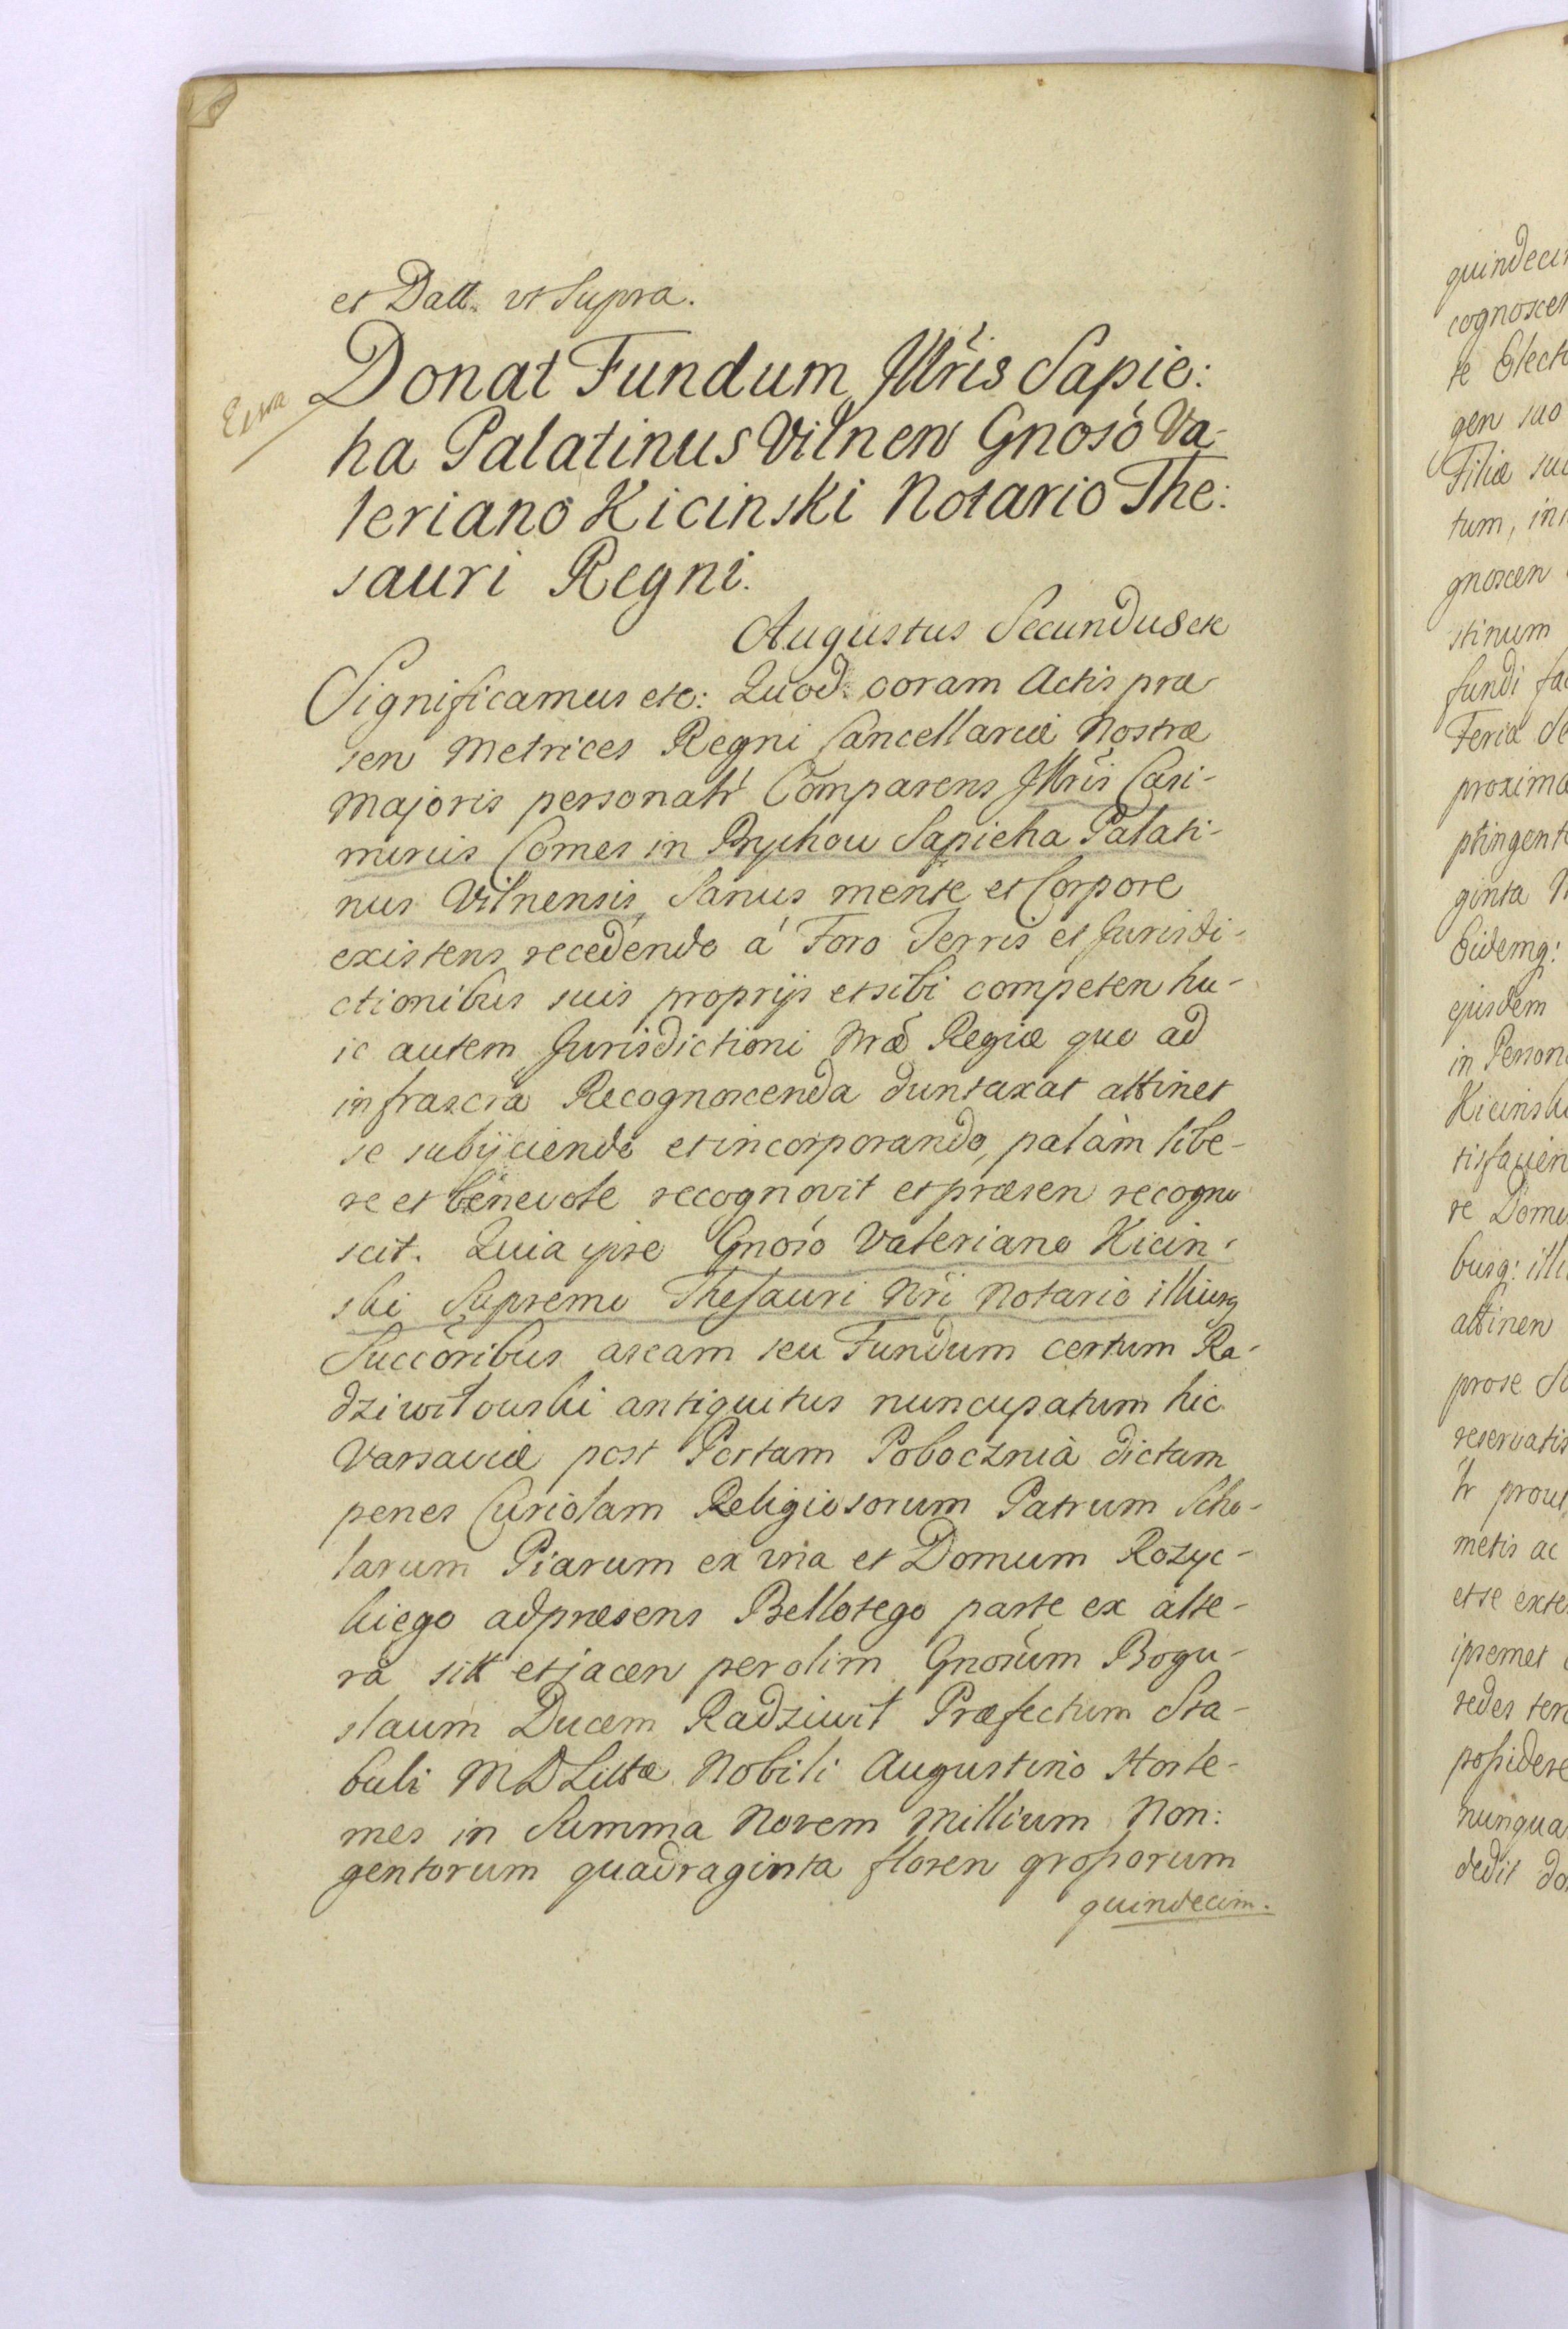 et Datt. vt Supra.
Donat Fundum Jllris Sapie:
ha Palatinus Vilnen Gnoso Va-
leriano Kicinski Notario The:
sauri Regni.
Augustus Secundus etc
Significamus etc: Quod. coram Actis præ
sen Metrices Regni Cancellariæ Nostræ
Majoris personalr Comparens Jllris Casi-
mirus Comes in Bychow Sapieha Palati-
nus Vilnensis, Sanus mente et Corpore
existens recedendo á Foro Terris et Jurisdi-
ctionibus suis proprijs et sibi competen hu-
ic autem Jurisdictioni Nræ Regiæ quo ad
infrascra Recognoscenda duntaxat attinet
se subijciendo et incorporando, palàm libe-
re et benevole recognovit et præsen recogno
scit. Quia ipse Gnoso Valeriano Kicin-
ski Supremo Thesauri Nri Notario illiusq
Succoribus aream seu Fundum certum Ra-
dziwiłowski antiquitus nuncupatum hic
Varsaviæ post Portam Pobocznia dictam
penes Curiolam Religiosorum Patrum Scho-
larum Piarum ex vna et Domum Rozyc-
kiego adpræsens Bellotego parte ex alte-
rà sitt et jacen per olim Gnosum Bogu-
slaum Ducem Radziwił Præfectum Sta-
buli M D Littæ Nobili Augustino Horle-
mes in Summa Novem Millium Non:
gentorum quadraginta floren grossorum
quindecim.
quindeci
cognoscen
te Elect
gen suo
Filiæ su
tum, in
gnoscen
stinum
fundi fa
Feria de
proxima
ptingent
ginta
Eidemq:
ejusdem
in Person
Kicinsk
tisfacien
re Domi
busq: illi
attinen
prose
reservatis
lr prout
metis ac
et se exte
ipsemet
redes
possidere
nunqua
dedit do